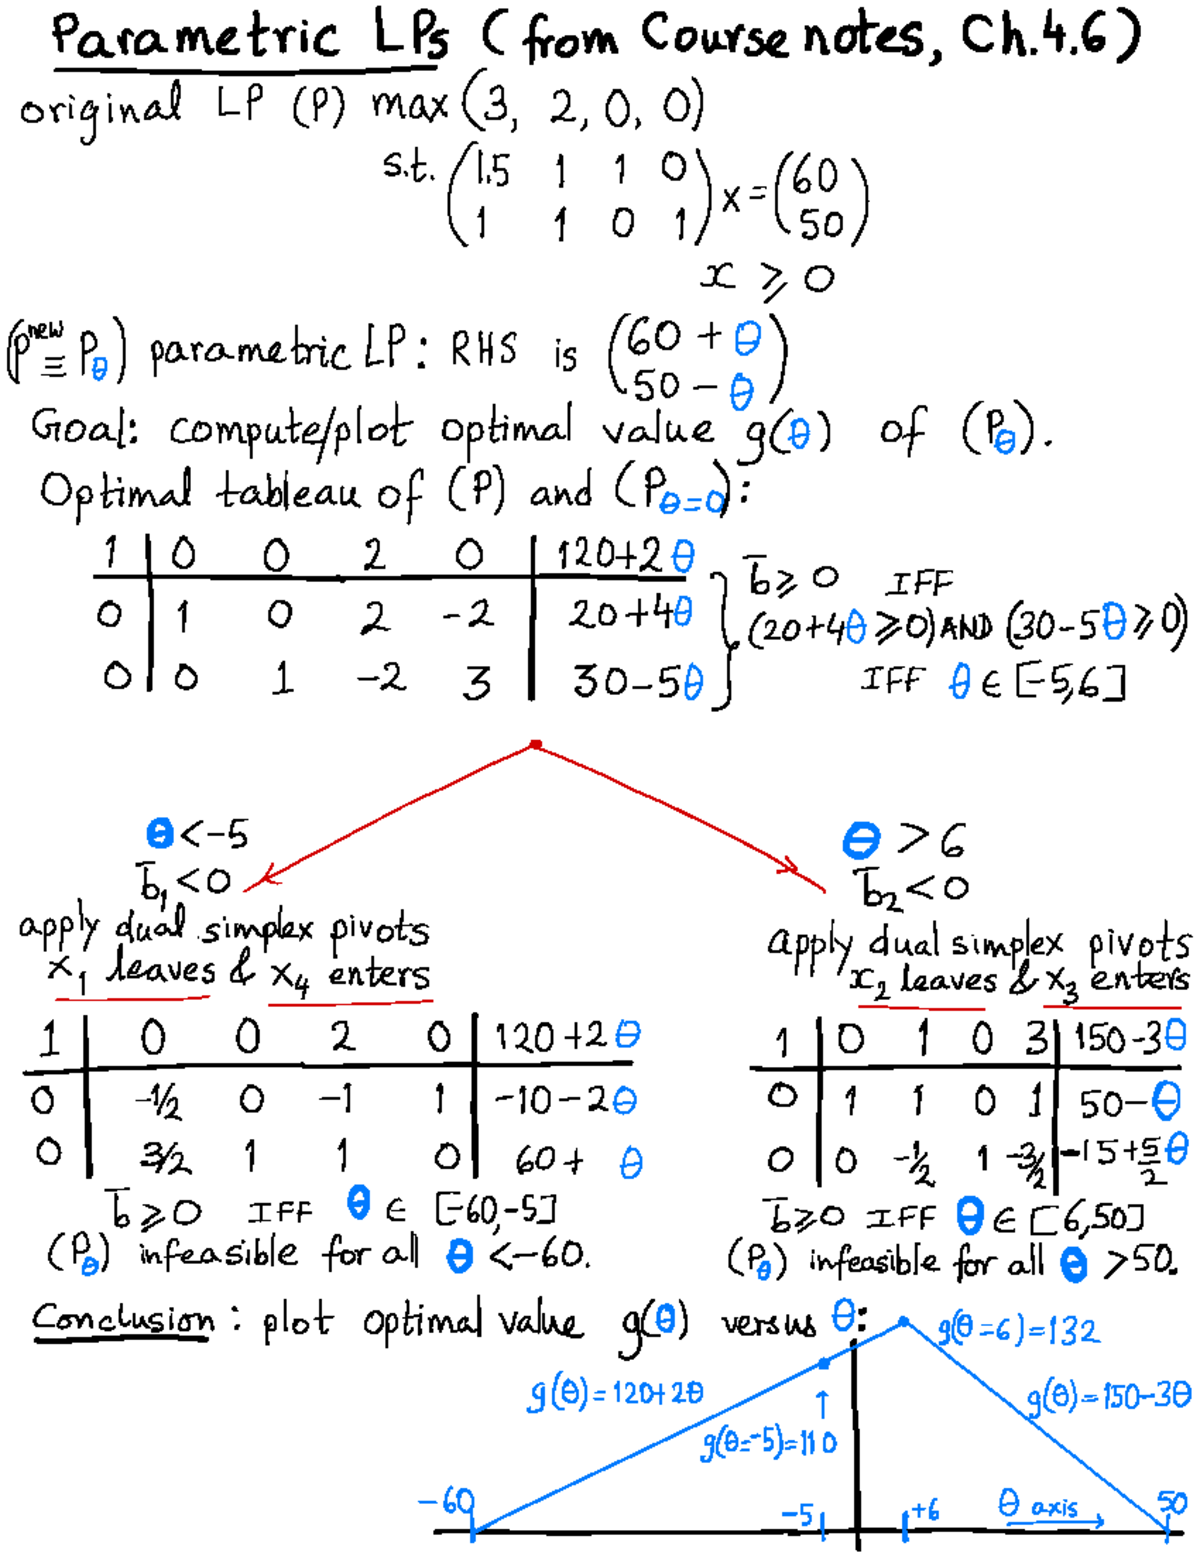 Parametric LPs (from Course notes, Ch.4.6)
original LP (P) max (3, 2, 0, 0)
s.t. (1.5 1 1 0) x = (60)
(1 1 0 1) (50)
x ⩾ 0
(P^new ≡ P_θ) parametric LP: RHS is (60 + θ)
(50 - θ)
Goal: compute/plot optimal value g(θ) of (P_θ).
Optimal tableau of (P) and (P_θ=0):
1 | 0 0 2 0 | 120+2θ
0 | 1 0 2 -2 | 20+4θ
0 | 0 1 -2 3 | 30-5θ
b̄ ⩾ 0 IFF
(20+4θ ⩾ 0) AND (30-5θ ⩾ 0)
IFF θ ∈ [-5,6]
θ < -5
b̄₁ < 0
apply dual simplex pivots
x₁ leaves & x₄ enters
1 | 0 0 2 0 | 120+2θ
0 | -1/2 0 -1 1 | -10-2θ
0 | 3/2 1 1 0 | 60+ θ
b̄ ⩾ 0 IFF θ ∈ [-60,-5]
(P_θ) infeasible for all θ < -60.
θ > 6
b̄₂ < 0
apply dual simplex pivots
x₂ leaves & x₃ enters
1 | 0 1 0 3 | 150-3θ
0 | 1 1 0 1 | 50-θ
0 | 0 -1/2 1 -3/2 | -15+5/2 θ
b̄ ⩾ 0 IFF θ ∈ [6,50]
(P_θ) infeasible for all θ > 50.
Conclusion: plot optimal value g(θ) versus θ:
g(θ=6)=132
g(θ)=120+2θ
g(θ)=150-3θ
g(θ=-5)=110
-60
-5
+6
θ axis
50